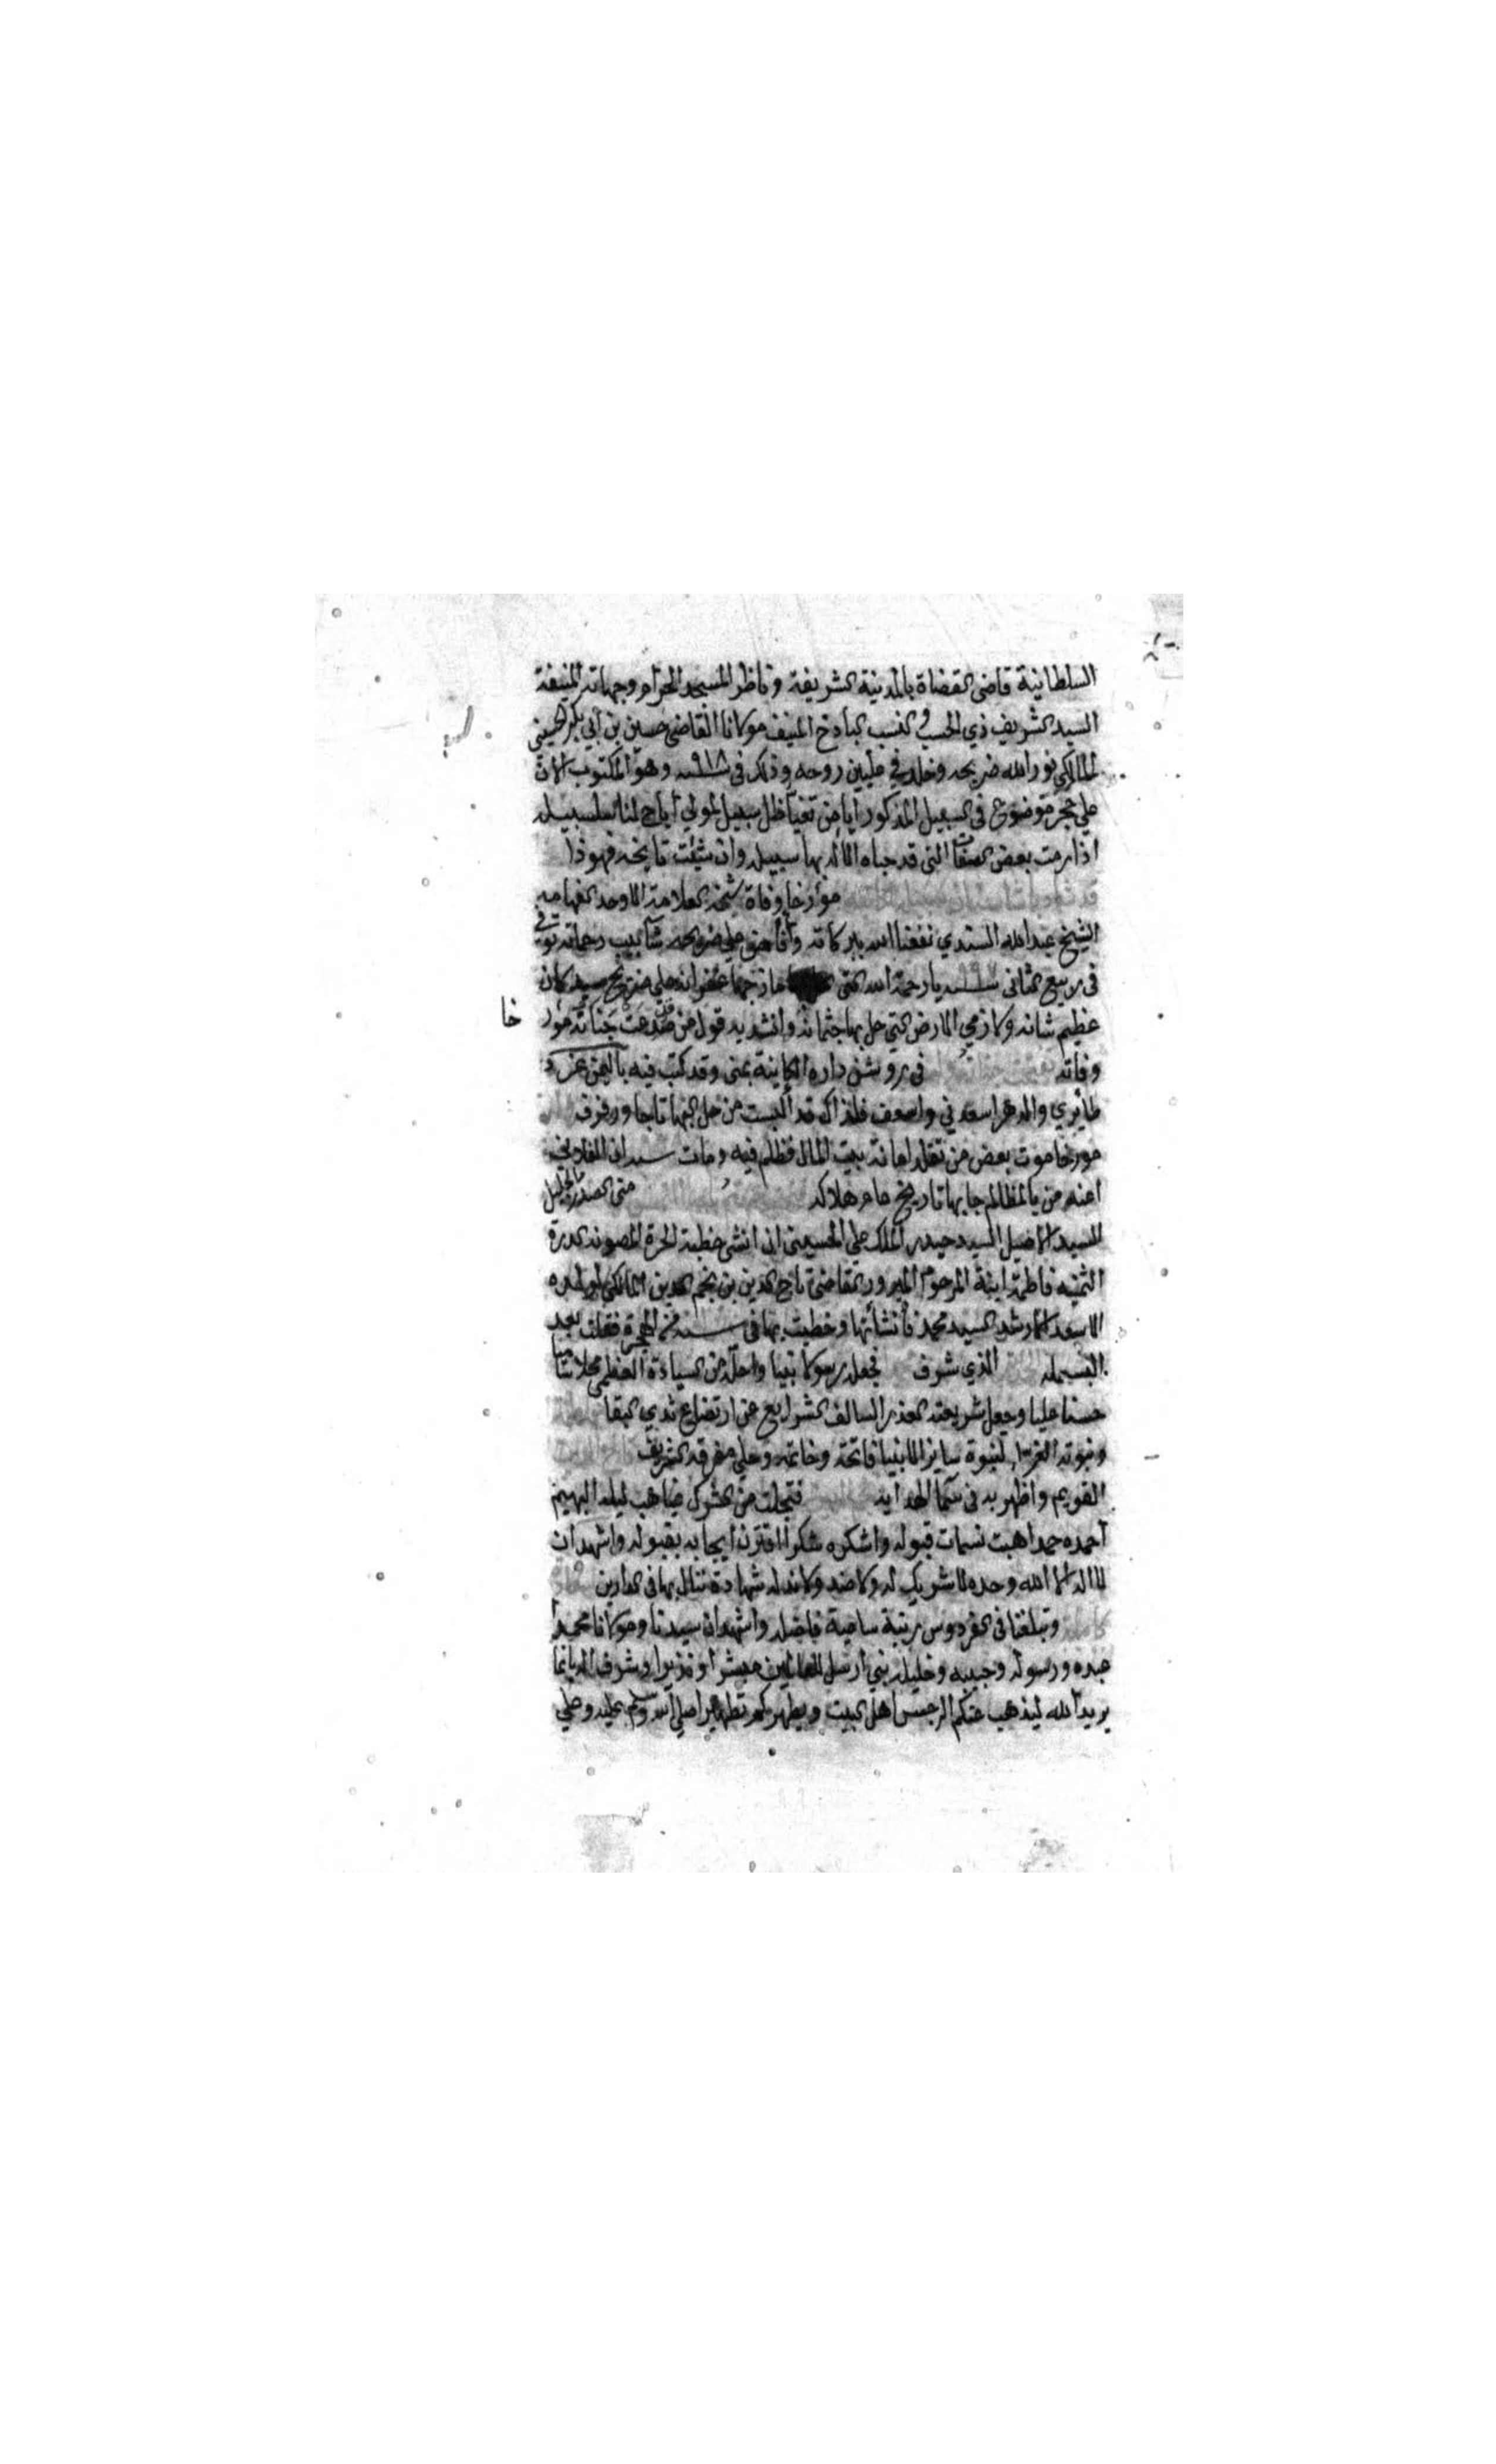 السلطانية قاضى القضاة بالمدينة الشريفة وناظر المسجد الحرام وجهاته المنيفة
السيد الشريف ذي الحسب والنسب الباذخ المنيف مولانا القاضى حسين بن أبي بكر الحسينى
المالكى نور الله ضريحه وخلد في عليين روحه وذلك فى سنة ٩١٨ وهو المكتوب الان
على حجر موضوع فى السبيل المذكور أيا من تفيا ظل سبيل لمولى أباح لنا سلسبيله
اذا رمت بعض الصفات التى قد حباه الاله بها سبيله وان شئت تاريخه فهو ذا
مؤرخا وفاة شيخه العلامة الاوحد الفهامه
الشيخ عبد الله السندي نفعنا الله ببركاته وأفاض على ضريحه شآبيب رحماته توفى
فى ربيع الثانى سنة يا رحمة الله التى على ضريح سيد كان
عظيم شانه وكذا زمي الارض التى حل بها جثمانه وانشد به قول من جناته مور
خا
وفاته فى روشن داره الكاينة بمنى وقد كتب فيه باليمن غرد
طايري والدهر اسعدني واسعف فلذاك قد ألبست من حل البها تاجا ورفرف
مورخا موت بعض من تقلد امانة بيت المال فظلم فيه ومات
اعنه من بالمظالم جا بها تاريخ عام هلاكه منى الصدر الجليل
السيد الاصيل السيد حيدر الملك على الحسينى ان انشى خطبة الحرة المصونه الدرة
الثمينه فاطمة ابنة المرحوم المبرور القاضى تاج الدين بن نجم الدين المالكى لولده
الاسعد الارشد السيد محمد فأنشأتها وخطبت بها فى سنة من الهجرة فقلت بعد
البسمله الذي شرف فجعله رسولا نبيا واحله من السيادة العظمى محلا سنا ميا
حسنا عليا وجعل شريعته العذرا لسالف الشرايع عن ارتضاع ثدي البقا
ونبوته الغرا لنبوة ساير الانبيا فاتحة وخاتمه وحلى مفرقه الشريف
القويم واظهر به فى سما الهدايه فتجلت من الشرك غياهب ليله البهيم
أحمده حمدا هبت نسمات قبوله واشكره شكرا اقترن ايجابه بقبوله واشهد ان
لا اله الا الله وحده لا شريك له ولا ضد ولا ند له شهادة ننال بها فى الدارين
وتبلغنا فى الفردوس رتبة سامية فاضله واشهد ان سيدنا ومولانا محمدا
عبده ورسوله وحبيبه وخليله نبي ارسل للعالمين مبشرا ونذيرا وشرف اله بانما
يريد الله ليذهب عنكم الرجس اهل البيت ويطهركم تطهيرا صلى الله وسلم عليه وعلى